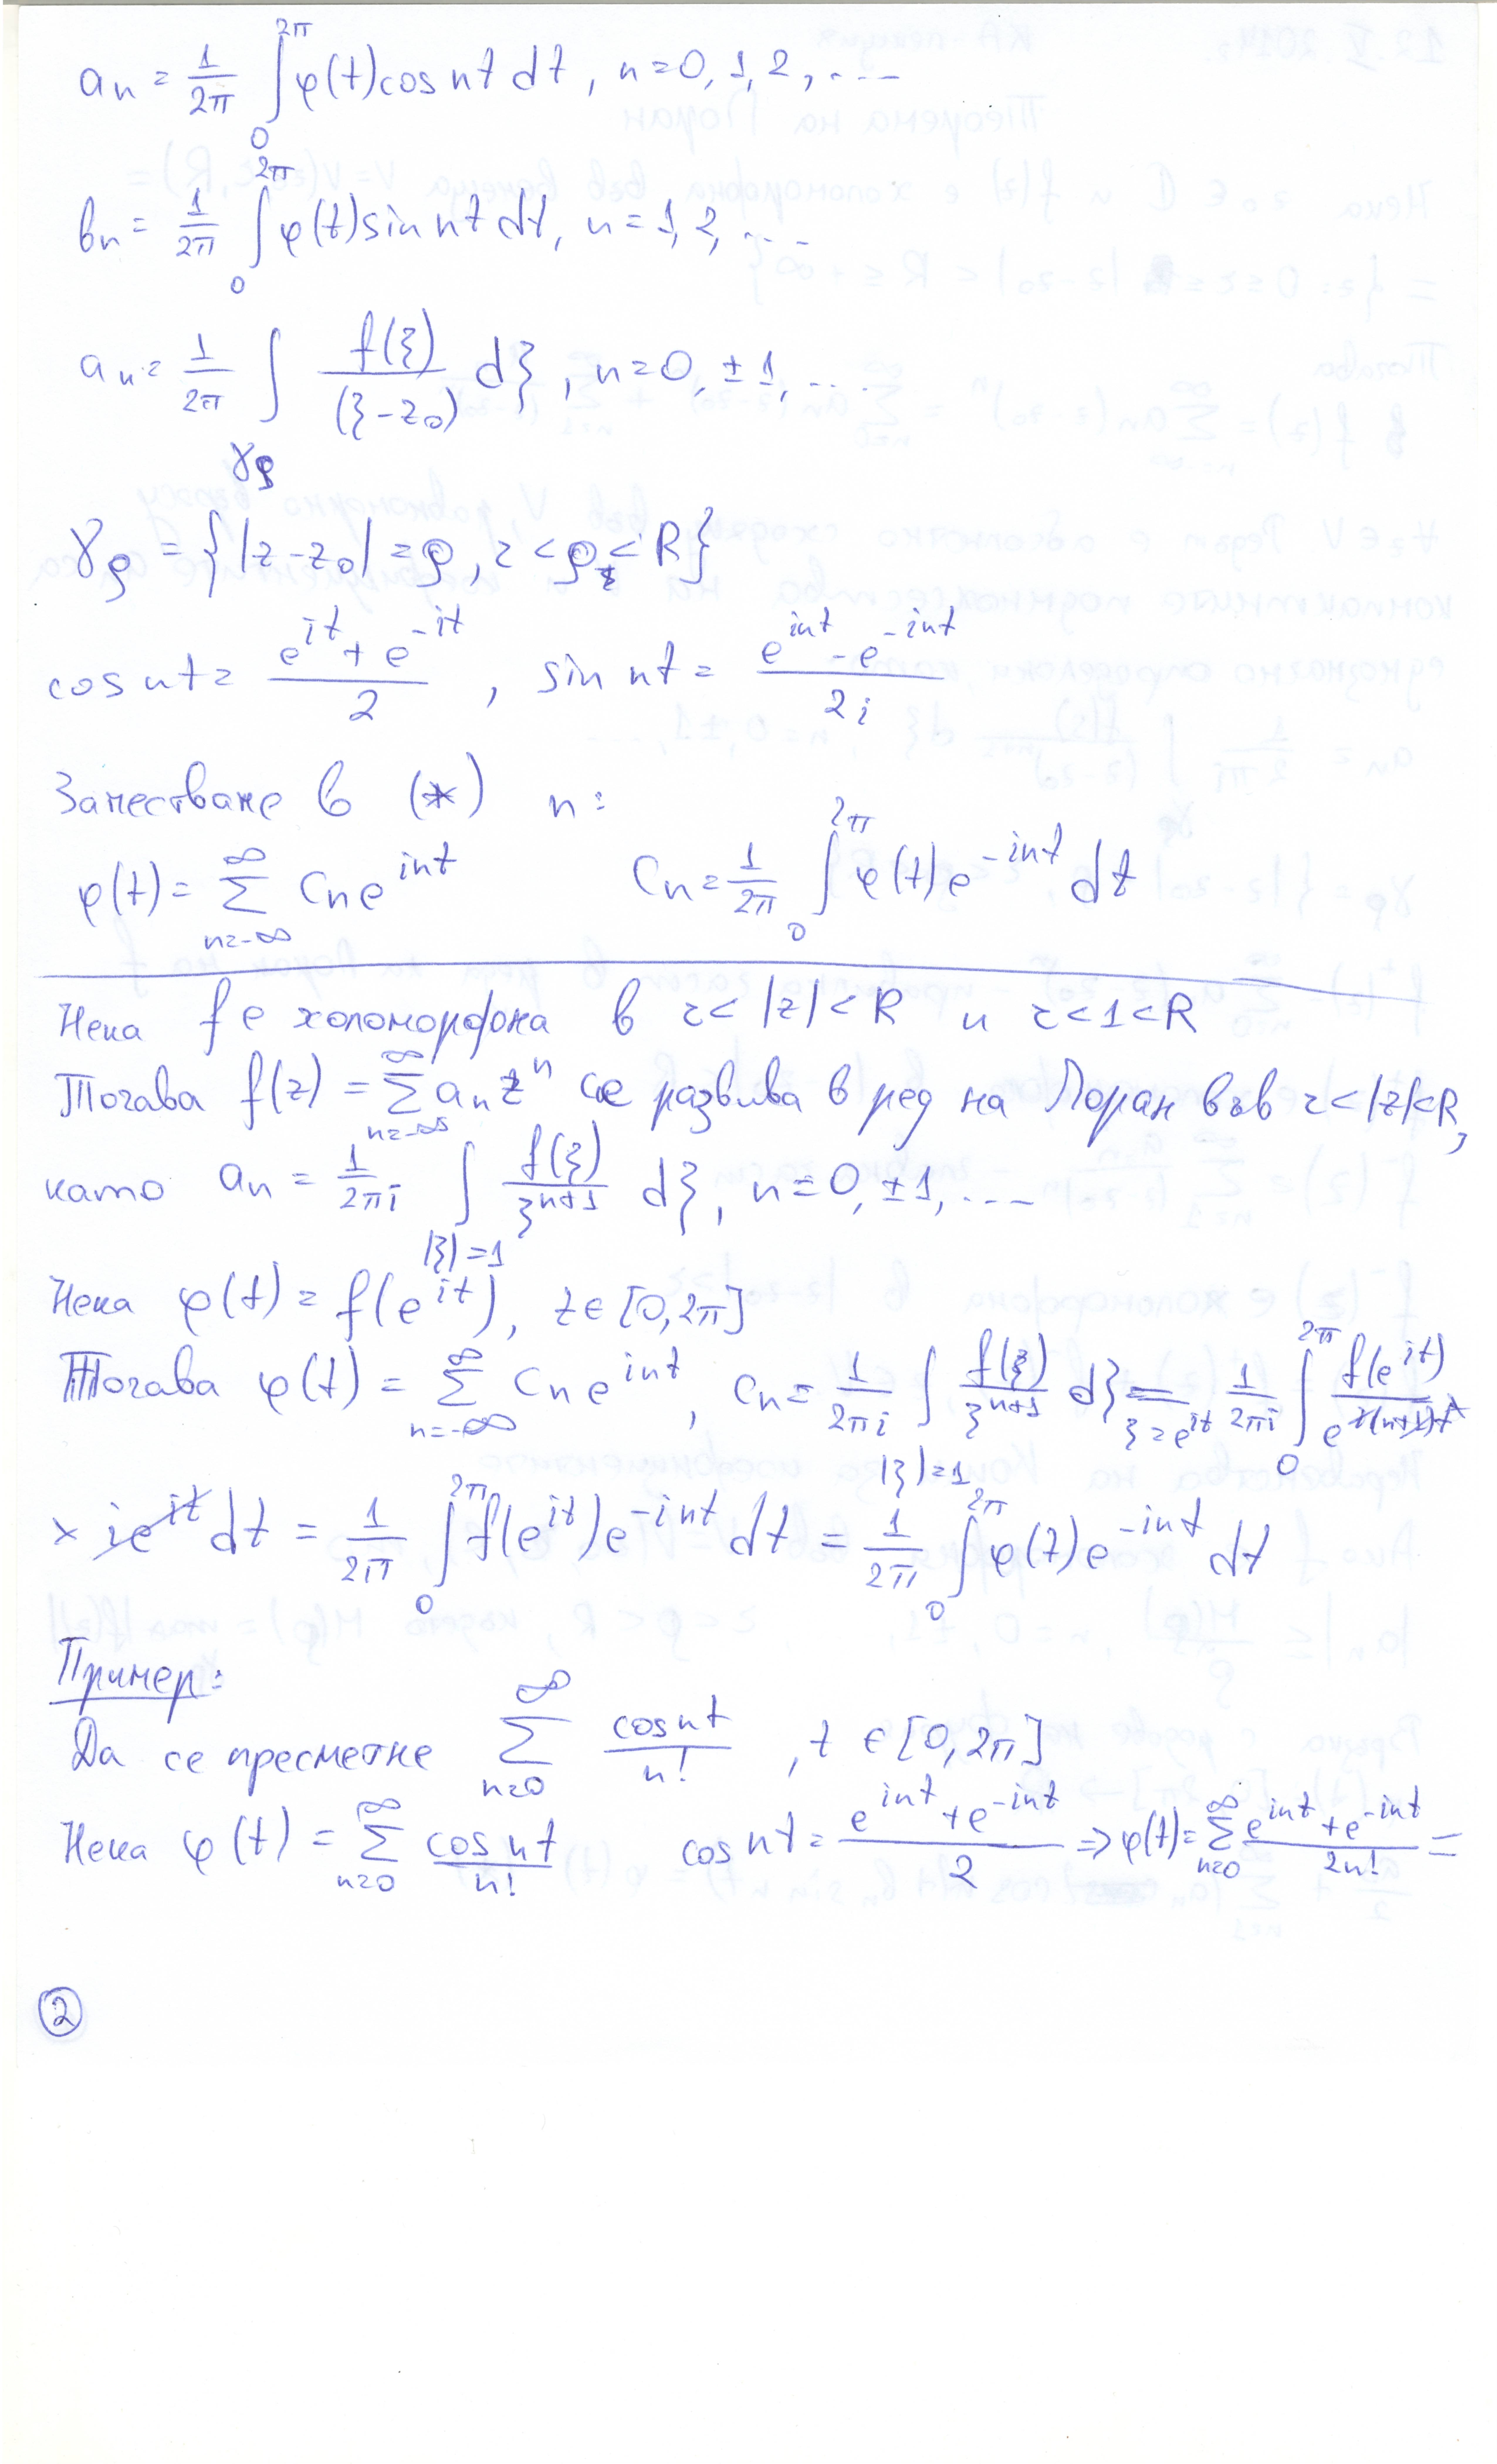 aₙ = 1/2π ∫₀^{2π} φ(t) cos nt dt, n=0, 1, 2, ...
bₙ = 1/2π ∫₀^{2π} φ(t) sin nt dt, n=1, 2, ...
aₙ = 1/2π ∫_{γρ} f(ξ)/(ξ-z₀) dξ, n=0, ±1, ...
γρ = {|z-z₀|=ρ, r<ρ<R}
cos nt = (e^{it} + e^{-it})/2, sin nt = (e^{int} - e^{-int})/2i
Заместване в (*) n:
φ(t) = ∑_{n=-∞}^{∞} Cₙe^{int} Cₙ = 1/2π ∫₀^{2π} φ(t)e^{-int} dt
Нека f е холоморфона в r<|z|<R и r<1<R
Тогава f(z) = ∑_{n=-∞}^{∞} aₙzⁿ се развива в ред на Лоран във r<|z|<R,
като aₙ = 1/2πi ∫_{|ξ|=1} f(ξ)/ξ^{n+1} dξ, n=0, ±1, ...
Нека φ(t) = f(e^{it}), t∈[0, 2π]
Тогава φ(t) = ∑_{n=-∞}^{∞} Cₙe^{int}, Cₙ = 1/2πi ∫_{|ξ|=1} f(ξ)/ξ^{n+1} dξ =_{ξ=e^{it}} 1/2πi ∫₀^{2π} f(e^{it})/e^{i(n+1)t} ×
× ie^{it} dt = 1/2π ∫₀^{2π} f(e^{it})e^{-int} dt = 1/2π ∫₀^{2π} φ(t)e^{-int} dt
Пример:
Да се пресметне ∑_{n=0}^{∞} cos nt/n!, t∈[0, 2π]
Нека φ(t) = ∑_{n=0}^{∞} cos nt/n! cos nt = (e^{int} + e^{-int})/2 ⇒ φ(t) = ∑_{n=0}^{∞} (e^{int} + e^{-int})/2n! =
2